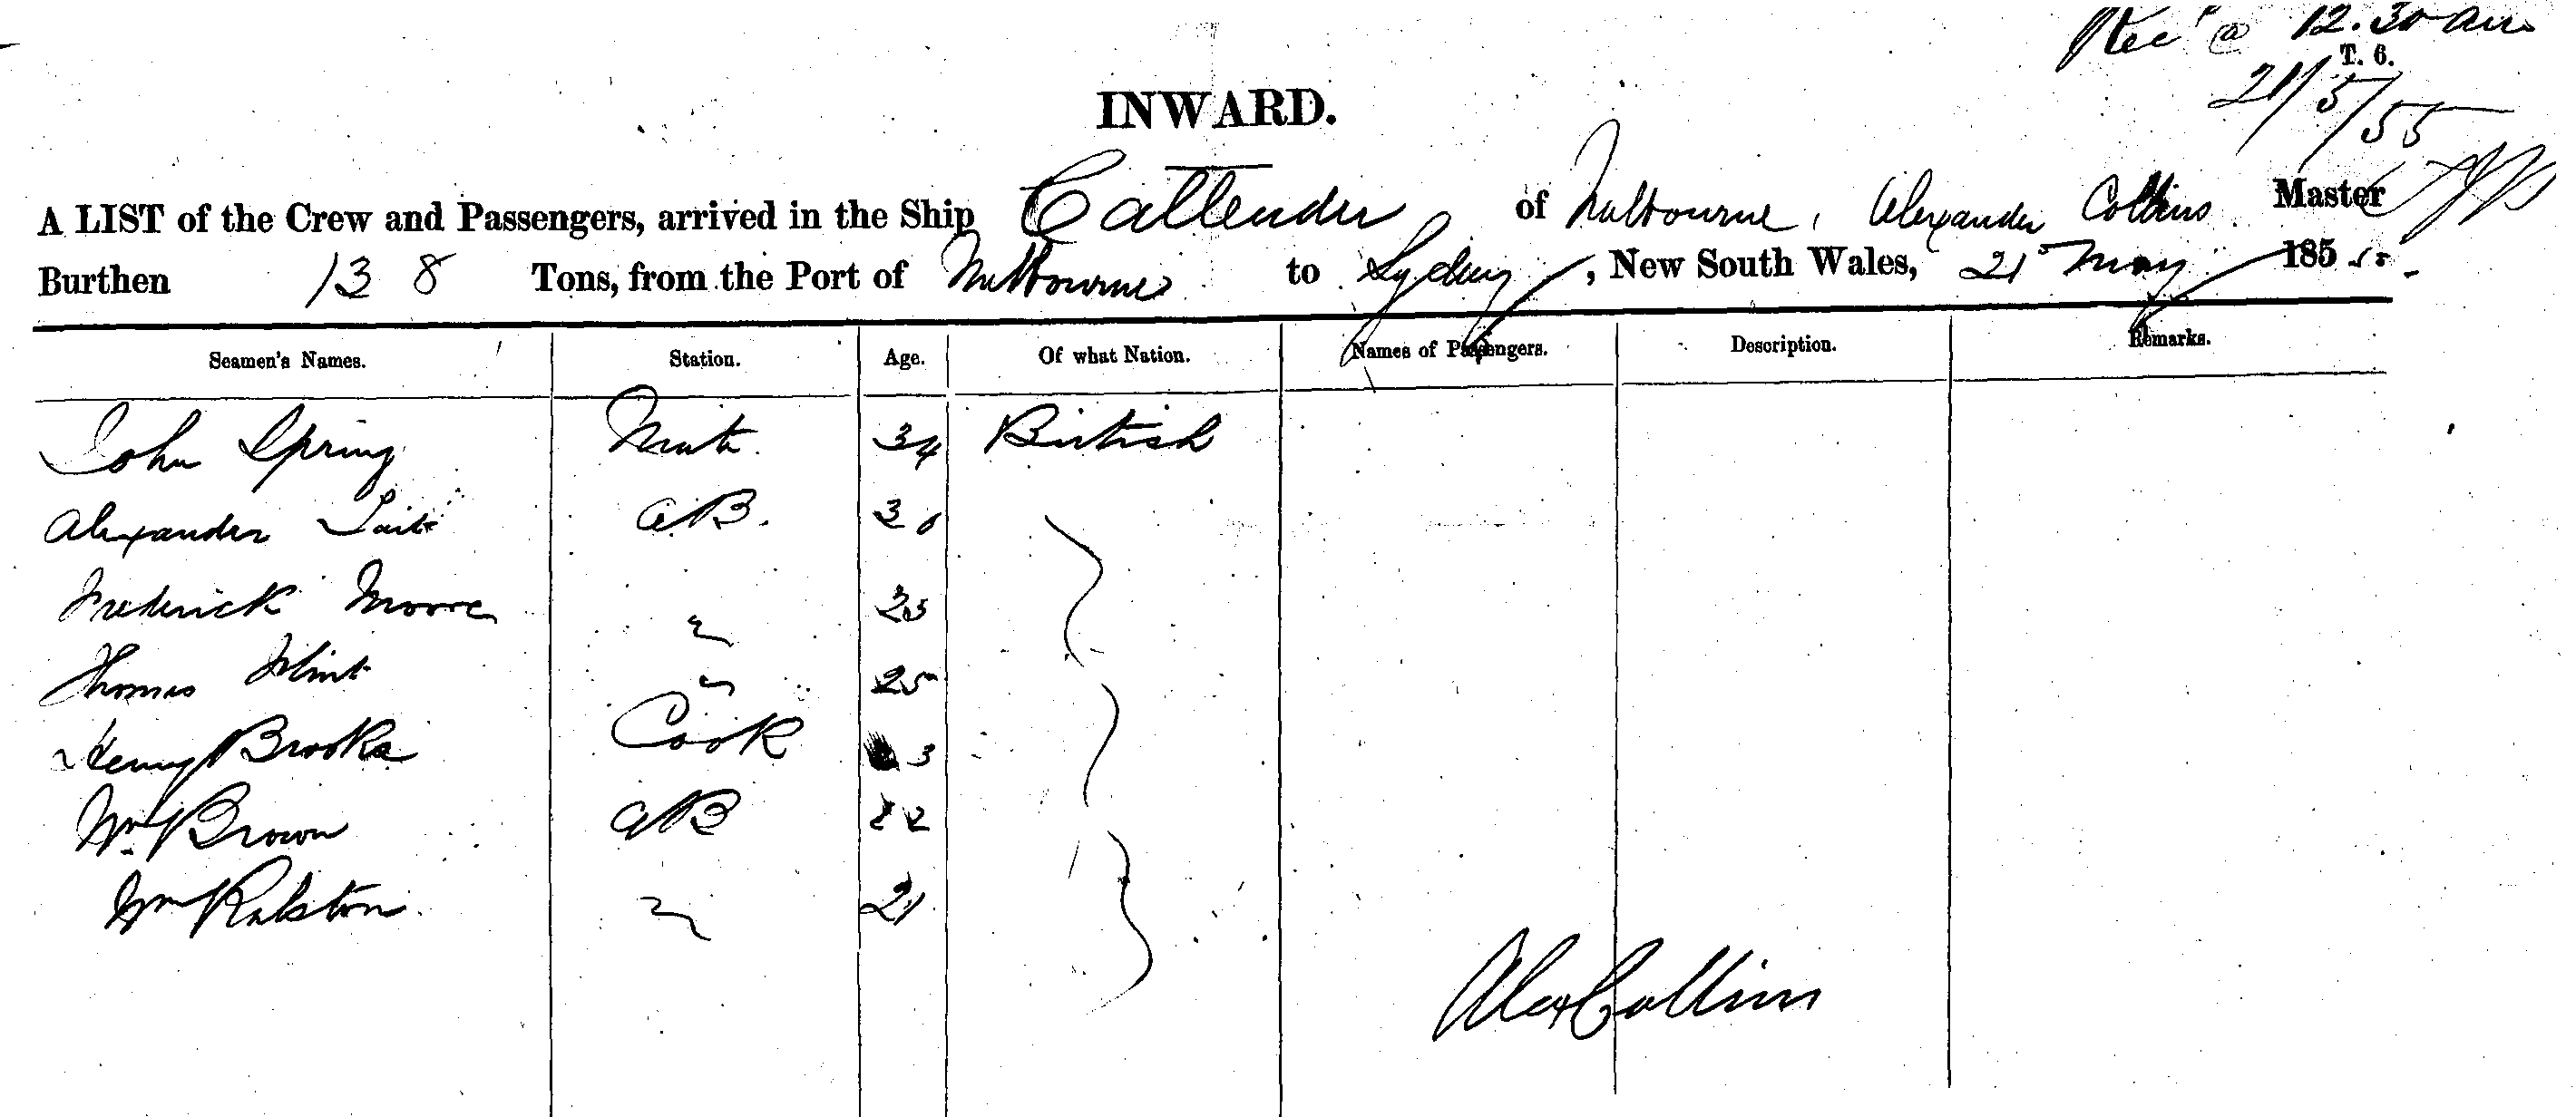 Rec @ 12.30 am
T. 6.
21/5/55
INWARD.
A LIST of the Crew and Passengers, arrived in the Ship Callender of Melbourne, Alexander Collins Master
Burthen 138 Tons, from the Port of Melbourne to Sydney, New South Wales, 21 May 1855.
Seamen's Names. Station. Age. Of what Nation. Names of Passengers. Description. Remarks.
John Spring Mate 34 British
Alexander Tait AB. 30
Frederick Moore " 23
Thomas Flint " 25
Henry Brooks Cook 3
Wm Brown AB 22
Wm Ralston " 21
Alex Collins